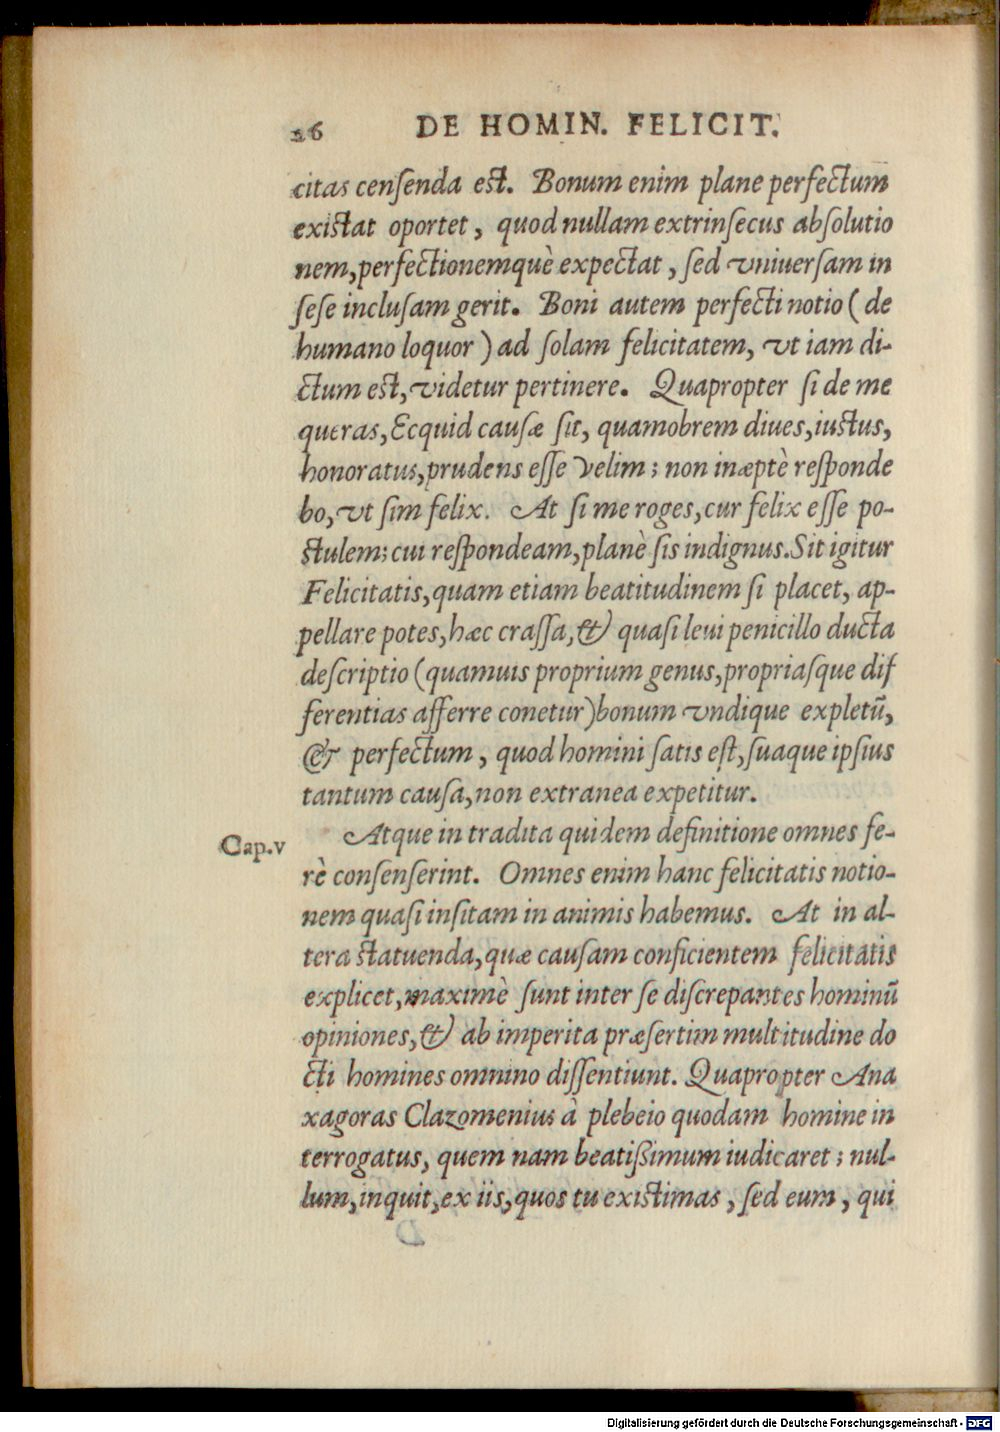 26 DE HOMIN. FELICIT.
citas censenda est. Bonum enim plane perfectum
existat oportet, quod nullam extrinsecus absolutio
nem, perfectionemquè expectat, sed vniuersam in
sese inclusam gerit. Boni autem perfecti notio (de
humano loquor) ad solam felicitatem, vt iam di-
ctum est, videtur pertinere. Quapropter si de me
queras, Ecquid causæ sit, quamobrem diues, iustus,
honoratus, prudens esse velim; non inæptè responde
bo, vt sim felix. At si me roges, cur felix esse po-
stulem; cui respondeam, planè sis indignus. Sit igitur
Felicitatis, quam etiam beatitudinem si placet, ap-
pellare potes, hæc crassa, & quasi leui penicillo ducta
descriptio (quamuis proprium genus, propriasque dif
ferentias afferre conetur) bonum vndique expletũ,
& perfectum, quod homini satis est, suaque ipsius
tantum causa, non extranea expetitur.
Cap.v Atque in tradita quidem definitione omnes fe-
rè consenserint. Omnes enim hanc felicitatis notio-
nem quasi insitam in animis habemus. At in al-
tera statuenda, quæ causam conficientem felicitatis
explicet, maximè sunt inter se discrepantes hominũ
opiniones, & ab imperita præsertim multitudine do
cti homines omnino dissentiunt. Quapropter Ana
xagoras Clazomenius à plebeio quodam homine in
terrogatus, quem nam beatißimum iudicaret; nul-
lum, inquit, ex iis, quos tu existimas, sed eum, qui
Digitalisierung gefördert durch die Deutsche Forschungsgemeinschaft - DFG